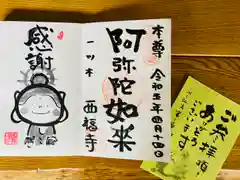 本尊
令和五年四月十四日
阿弥陀如来
一ツ木
西福寺
感謝
ご参拝頂
ありがとう
ございます